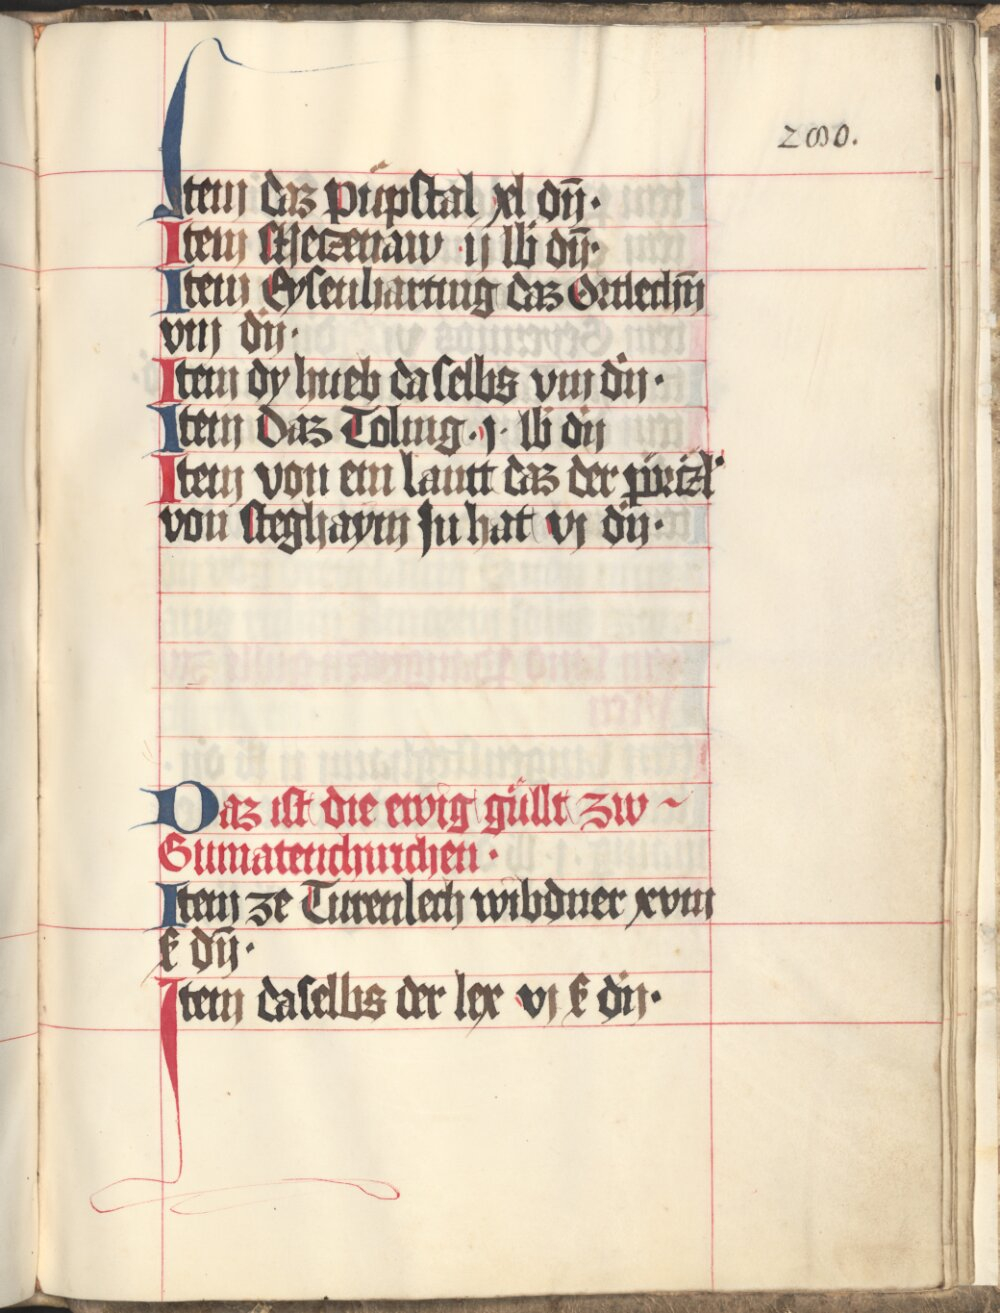 200.
Item daz püpstal xl dn̄·
Item scherzenaw ij lb dn̄·
Item Eysenharting daz Ortlechn̄
viij dn·
Item dy hueb daselbs viij dn·
Item Daz Toling · j · lb dn
Item von ein lautt daz der
von steghaym Jn hat vj dn·
Daz ist die ewig güllt zw ~
Item ze Turenlech wibduer xviij
ß dn̄·
Item daselbs der lex vj ß dn·